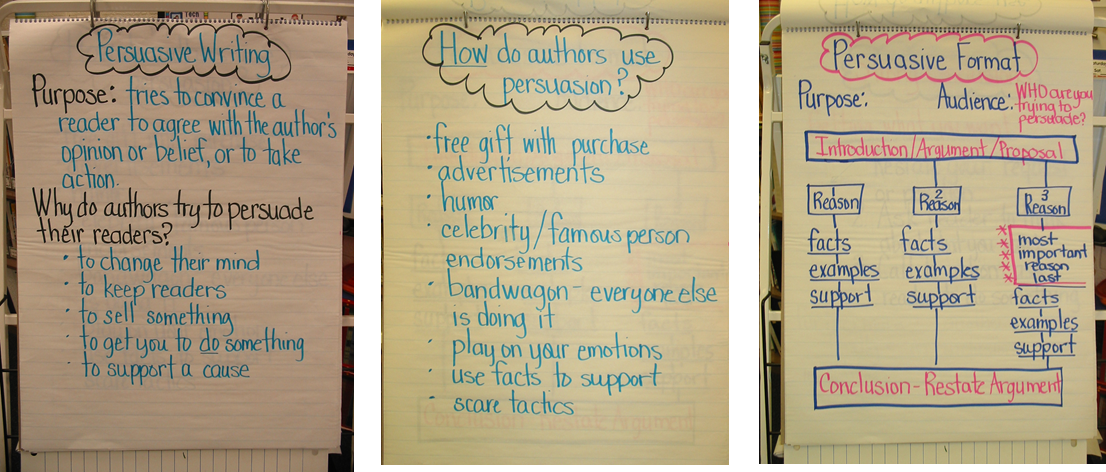 Persuasive Writing
Purpose: tries to convince a
reader to agree with the author's
opinion or belief, or to take
action.
Why do authors try to persuade
their readers?
• to change their mind
• to keep readers
• to sell something
• to get you to do something
• to support a cause
How do authors use
persuasion?
• free gift with purchase
• advertisements
• humor
• celebrity/famous person
endorsements
• bandwagon - everyone else
is doing it
• play on your emotions
• use facts to support
• scare tactics
Persuasive Format
Purpose: Audience: WHO are you
trying to
persuade?
Introduction/Argument/Proposal
1 Reason
2 Reason
3 Reason
facts
examples
support
facts
examples
support
most
important
reason
last
facts
examples
support
Conclusion - Restate Argument